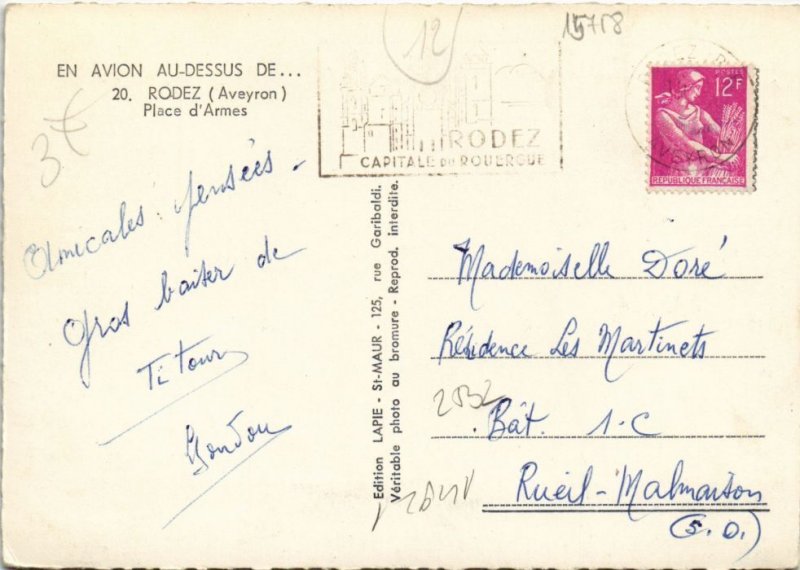 12
15758
EN AVION AU-DESSUS DE...
20. RODEZ (Aveyron)
Place d'Armes
3€
RODEZ
CAPITALE DU ROUERGUE
POSTES
12F
REPUBLIQUE FRANÇAISE
AVEYRON
Amicales pensées.
Gros baiser de
Titour
Edition LAPIE - St-MAUR - 125, rue Garibaldi.
Véritable photo au bromure - Reprod. interdite.
Mademoiselle Doré
Résidence Les Martinets
Bât. 1-C
Rueil-Malmaison
(S.O.)